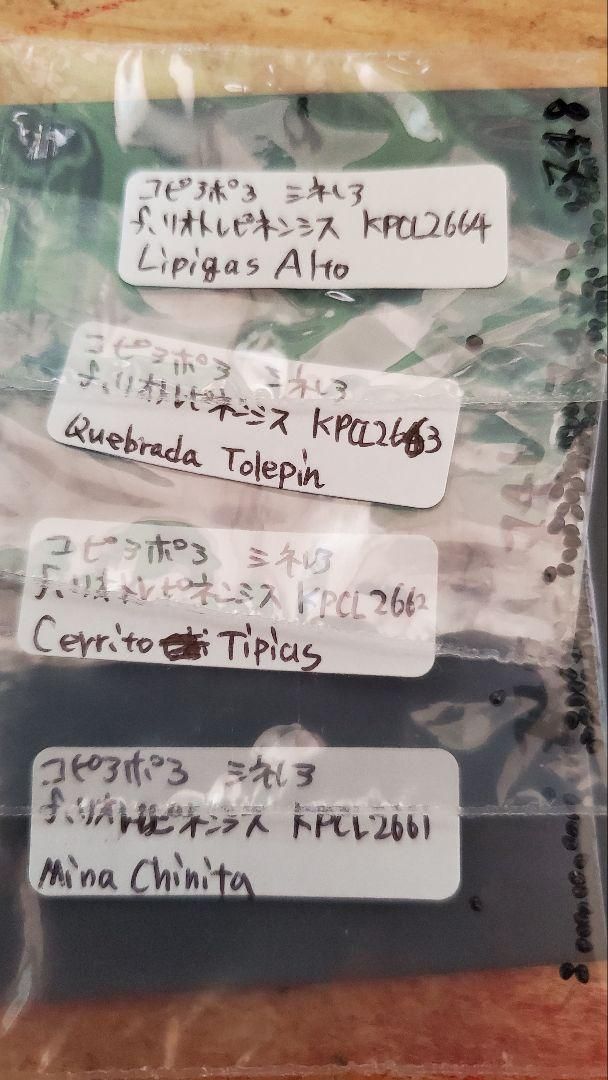 コピアポア シネレア
f.リオトレピネンシス KPCL2664
Lipigas Alto
コピアポア シネレア
f.リオトレピネンシス KPCL2663
Quebrada Tolepin
コピアポア シネレア
f.リオトレピネンシス KPCL2662
Cerrito Tipias
コピアポア シネレア
f.リオトレピネンシス KPCL2661
Mina Chinita
748